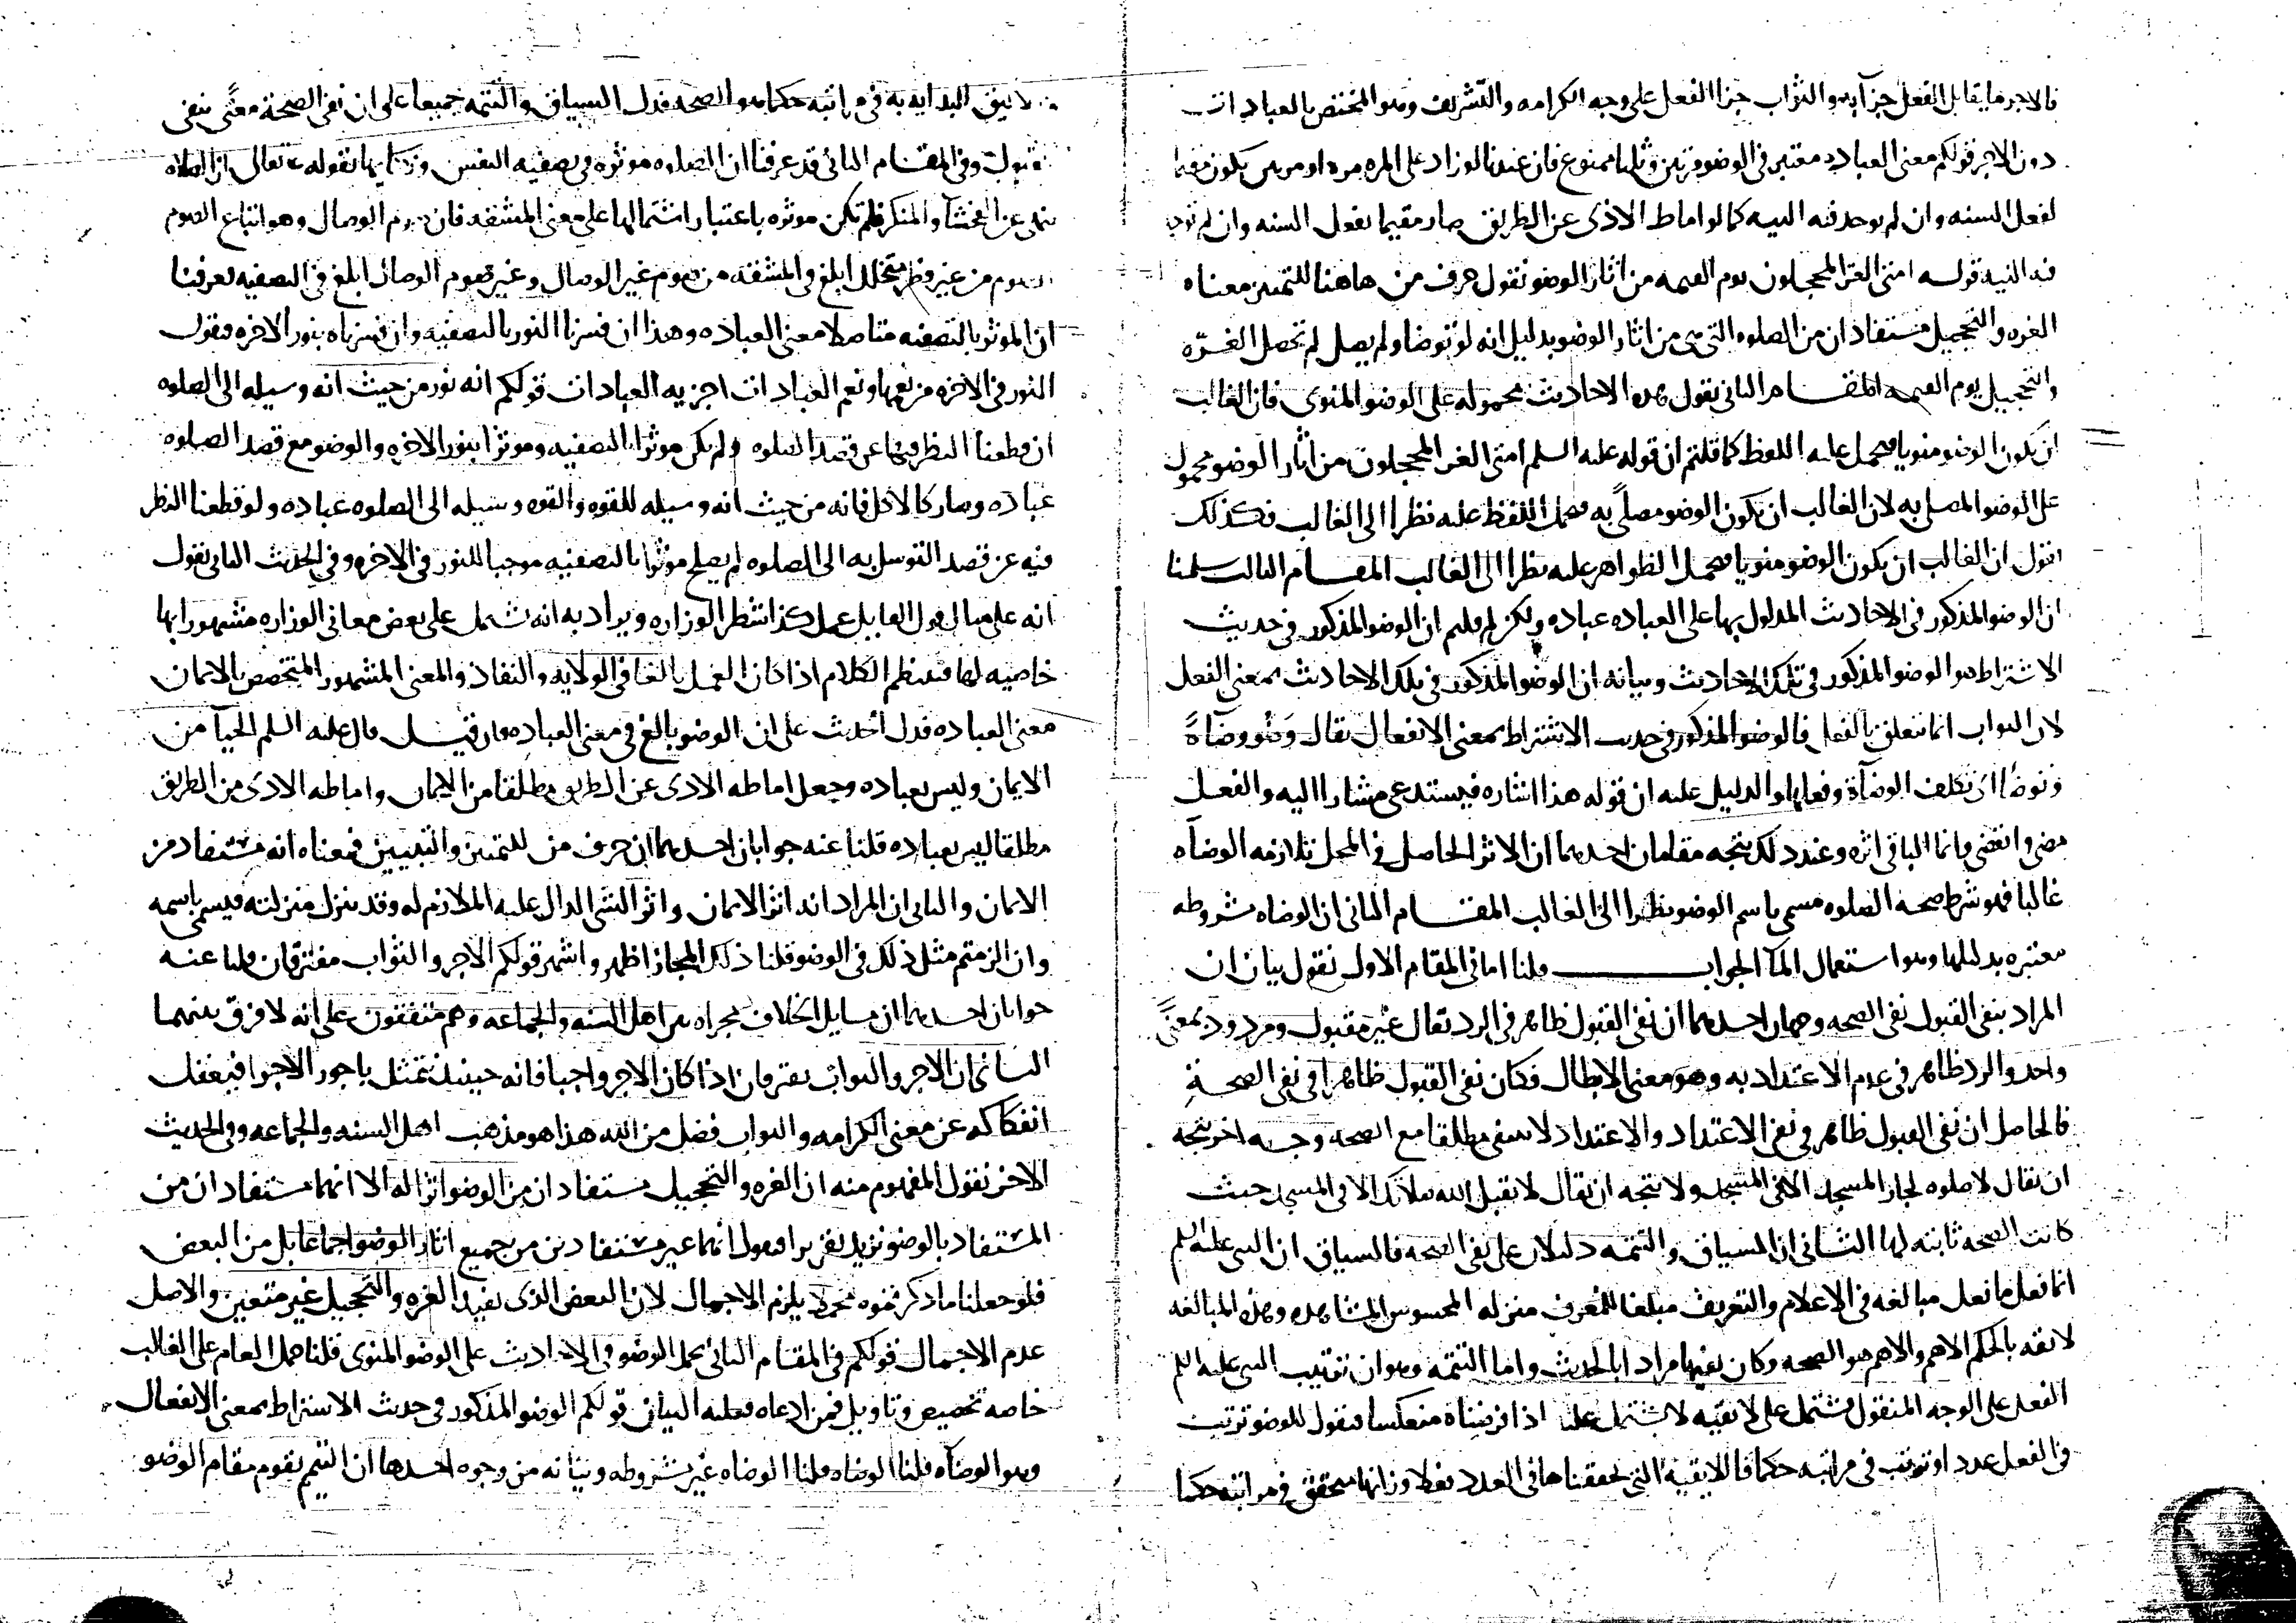 فالاجر ما يقابل الفعل جزآ به والثواب جزا الفعل على وجه الكرامه والتشريف وهو المختص بالعبادات
دون الاجر قولكم معنى العباده معتبر في الوضو مرتين وثلثا ممنوع فان عندنا لو زاد على المره مره او مرتين يكون مقيما
لفعل السنه وان لم يوجد فيه النيه كما لو اماط الاذى عن الطريق صار مقيما لفعل السنه وان لم توجد
فيه النيه قوله امتى الغر المحجلون يوم القيمه من اثار الوضو نقول حرف من هاهنا للتميز معناه
الغره والتحجيل مستفادان من الصلوه التي هي من اثار الوضو بدليل انه لو توضا ولم يصل لم تحصل الغره
والتحجيل يوم القيمه المقام الثاني نقول هذه الاحاديث محموله على الوضو المنوى فان الغالب
ان يكون الوضو منويا فيحمل عليه اللفظ كما قلتم ان قوله عليه السلم امتى الغر المحجلون من اثار الوضو محمول
على الوضو المصلى به لان الغالب ان يكون الوضو مصلًى به فيحمل اللفظ عليه نظرا الى الغالب فكذلك
نقول ان الغالب ان يكون الوضو منويا فيحمل الظواهر عليه نظرا الى الغالب المقام الثالث سلمنا
ان الوضو المذكور في الاحاديث المدلول بها على العباده عباده ولكن لم قلتم ان الوضو المذكور في حديث
الاشتراط هو الوضو المذكور في تلك الاحاديث وبيانه ان الوضو المذكور في تلك الاحاديث بمعنى الفعل
لان الثواب انما يتعلق بالفعل فالوضو المذكور في حديث الاشتراط بمعنى الانفعال يقال وَضُو وضاةً
وتوضا اى تكلف الوضآة وفعلها والدليل عليه ان قوله هذا اشاره فيستدعى مشارا اليه والفعل
مضى وانقضى وانما الباقي اثره وعند ذلك يتجه مقامان احدهما ان الاثر الحاصل في المحل تلازمه الوضآه
غالبا فهو شرط صحه الصلوه مسمى باسم الوضو نظرا الى الغالب المقام الثاني ان الوضاه شروطه
معتبره بدليلها وهو استعمال المآ الجواب قلنا اما في المقام الاول نقول بيان ان
المراد بنفى القبول نفى الصحه وجهان احدهما ان نفى القبول ظاهر في الرد يقال غير مقبول ومردود بمعنًى
واحد والرد ظاهر في عدم الاعتداد به وهو معنى الابطال فكان نفى القبول ظاهرا في نفى الصحةِ
فالحاصل ان نفى القبول ظاهر في نفى الاعتداد والاعتداد لا ينفى مطلقا مع الصحه وجه اخر يتجه
ان يقال لا صلوه لجار المسجد الا في المسجد ولا يتجه ان يقال لا يقبل الله صلاته الا في المسجد حيث
كانت الصحه ثابته لها الثاني ان السياق والتتمه دليلان على نفى الصحه فالسياق ان النبى عليه السلم
انما فعل ما فعل مبالغه في الاعلام والتعريف مبلغا للمعرف منزله المحسوس المشاهده وهذه المبالغه
لائقه بالحكم الاهم والاهم هو الصحه وكان نفيها مرادا بالحديث واما التتمه وهو ان ترتيب النبى عليه السلم
الفعل على الوجه المنقول مشتمل على لايقيه لا يشتمل عليها اذا فرضناه منعكسا فنقول للوضو ترتيب
في الفعل عدد او ترتب في مراتبه حكما فاللايقيه التي لحققناها في العدد فعلا وزانها متحقق في مراتبه حكما
لا يليق البدايه به في مراتبه حكما هو الصحه فدل السياق والتتمه جميعا على ان نفى الصحة معنًى بنفى
القبول وفي المقام الثاني قد عرفنا ان الصلوه موثره في تصفيه النفس وتزكيتها بقوله تعالى ان الصلاه
تنهى عن الفحشآ والمنكر فلم تكن موثره باعتبار اشتمالها على معنى المشقه فان صوم الوصال وهو اتباع الصوم
الصوم من غير فطر متخلل ابلغ في المشقه من صوم غير الوصال وغير صوم الوصال ابلغ في التصفيه فعرفنا
ان الموثر بالتصفيه متاصلا معنى العباده وهذا ان فسرنا النور بالتصفيه وان فسرناه بنور الاخره فنقول
النور في الاخره من نعمها ونعم العبادات اجزيه العبادات قولكم انه نور من حيث انه وسيله الى الصلوه
ان قطعنا النظر فيها عن قصد الصلوه ولم يكن موثرا بالتصفيه وموثرا بنور الاخره والوضو مع قصد الصلوه
عباده وصار كالاكل فانه من حيث انه وسيله للقوه والقوه وسيله الى الصلوه عباده ولو قطعنا النظر
فيه عن قصد التوسل به الى الصلوه لم يصلح موثرا بالتصفيه موجبا للنور في الاخره وفي الحديث الثاني نقول
انه على مثال قول القايل عمل كذا شطر الوزاره ويراد به انه شمل على بعض معاني الوزاره مشهورا بها
خاصيه لها فينظم الكلام اذا كان العمل بالغا في الولايه والنفاذ والمعنى المشهور المتخصص بالايمان
معنى العباده فدل الحديث على ان الوضو بالغ في معنى العباده فان قيل قال عليه السلم الحيآ من
الايمان وليس بعباده وجعل اماطه الاذى عن الطريق مطلقا من الايمان واماطه الاذى من الطريق
مطلقا ليس بعباده قلنا عنه جوابان احدهما ان حرف من للتميز والتبيين فمعناه انه مستفاد من
الايمان والثاني ان المراد انه اثر الايمان واثر الشى الدال عليه الملازم له وقد ينزل منزلته فيسمى باسمه
وان الزمتم مثل ذلك في الوضو قلنا ذلك المجاز اظهر واشهر قولكم الاجر والثواب مفترقان قلنا عنه
جوابان احدهما ان مسايل الخلاف مجراه بين اهل السنه والجماعه وهم متفقون على انه لا فرق بينهما
الثاني ان الاجر والثواب يفترقان اذا كان الاجر واجبا فانه حينئذ يتمثل باجور الاجرا فيغفل
انفكاكه عن معنى الكرامه والثواب فضل من الله هذا هو مذهب اهل السنه والجماعه وفي الحديث
الاخر نقول المفهوم منه ان الغره والتحجيل مستفادان من الوضو اثرا له الا انهما مستفادان من
المستفاد بالوضو نزيد تقريرا فنقول انهما غير مستفادين من جميع اثار الوضو اجماعا بل من البعض
فلو جعلنا ما ذكرتموه محملا يلزم الاجمال لان البعض الذى يفيد الغره والتحجيل غير متعين والاصل
عدم الاجمال قولكم في المقام الثاني يحمل الوضو في الاحاديث على الوضو المنوى قلنا حمل العام على الغالب
خاصه تخصيص وتاويل فمن ادعاه فعليه البيان قولكم الوضو المذكور في حديث الاشتراط بمعنى الانفعال
وهو الوضآه قلنا الوضاه قلنا الوضاه غير مشروطه وبيانه من وجوه احدها ان التيمم يقوم مقام الوضو